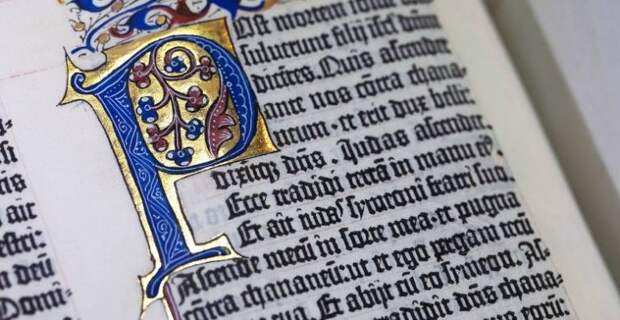 Post mortem iosue
suluerunt filij isrl
dicētes. Quis ascendet
ante nos cōtra chana=
neum · et erit dux belli:
Dixitqꝫ dn̄s . Judas ascendet.
Ecce tradidi terrā in manu
Et ait iudas symeoni fratri suo.
Ascende mecū in sorte mea · et pugna
cōtra chananeū: ut et ego pergam tecū
tua. Et abijt cū eo symeon. As=
tradidit dn̄s chana=
eorū:
n deū
Domi=